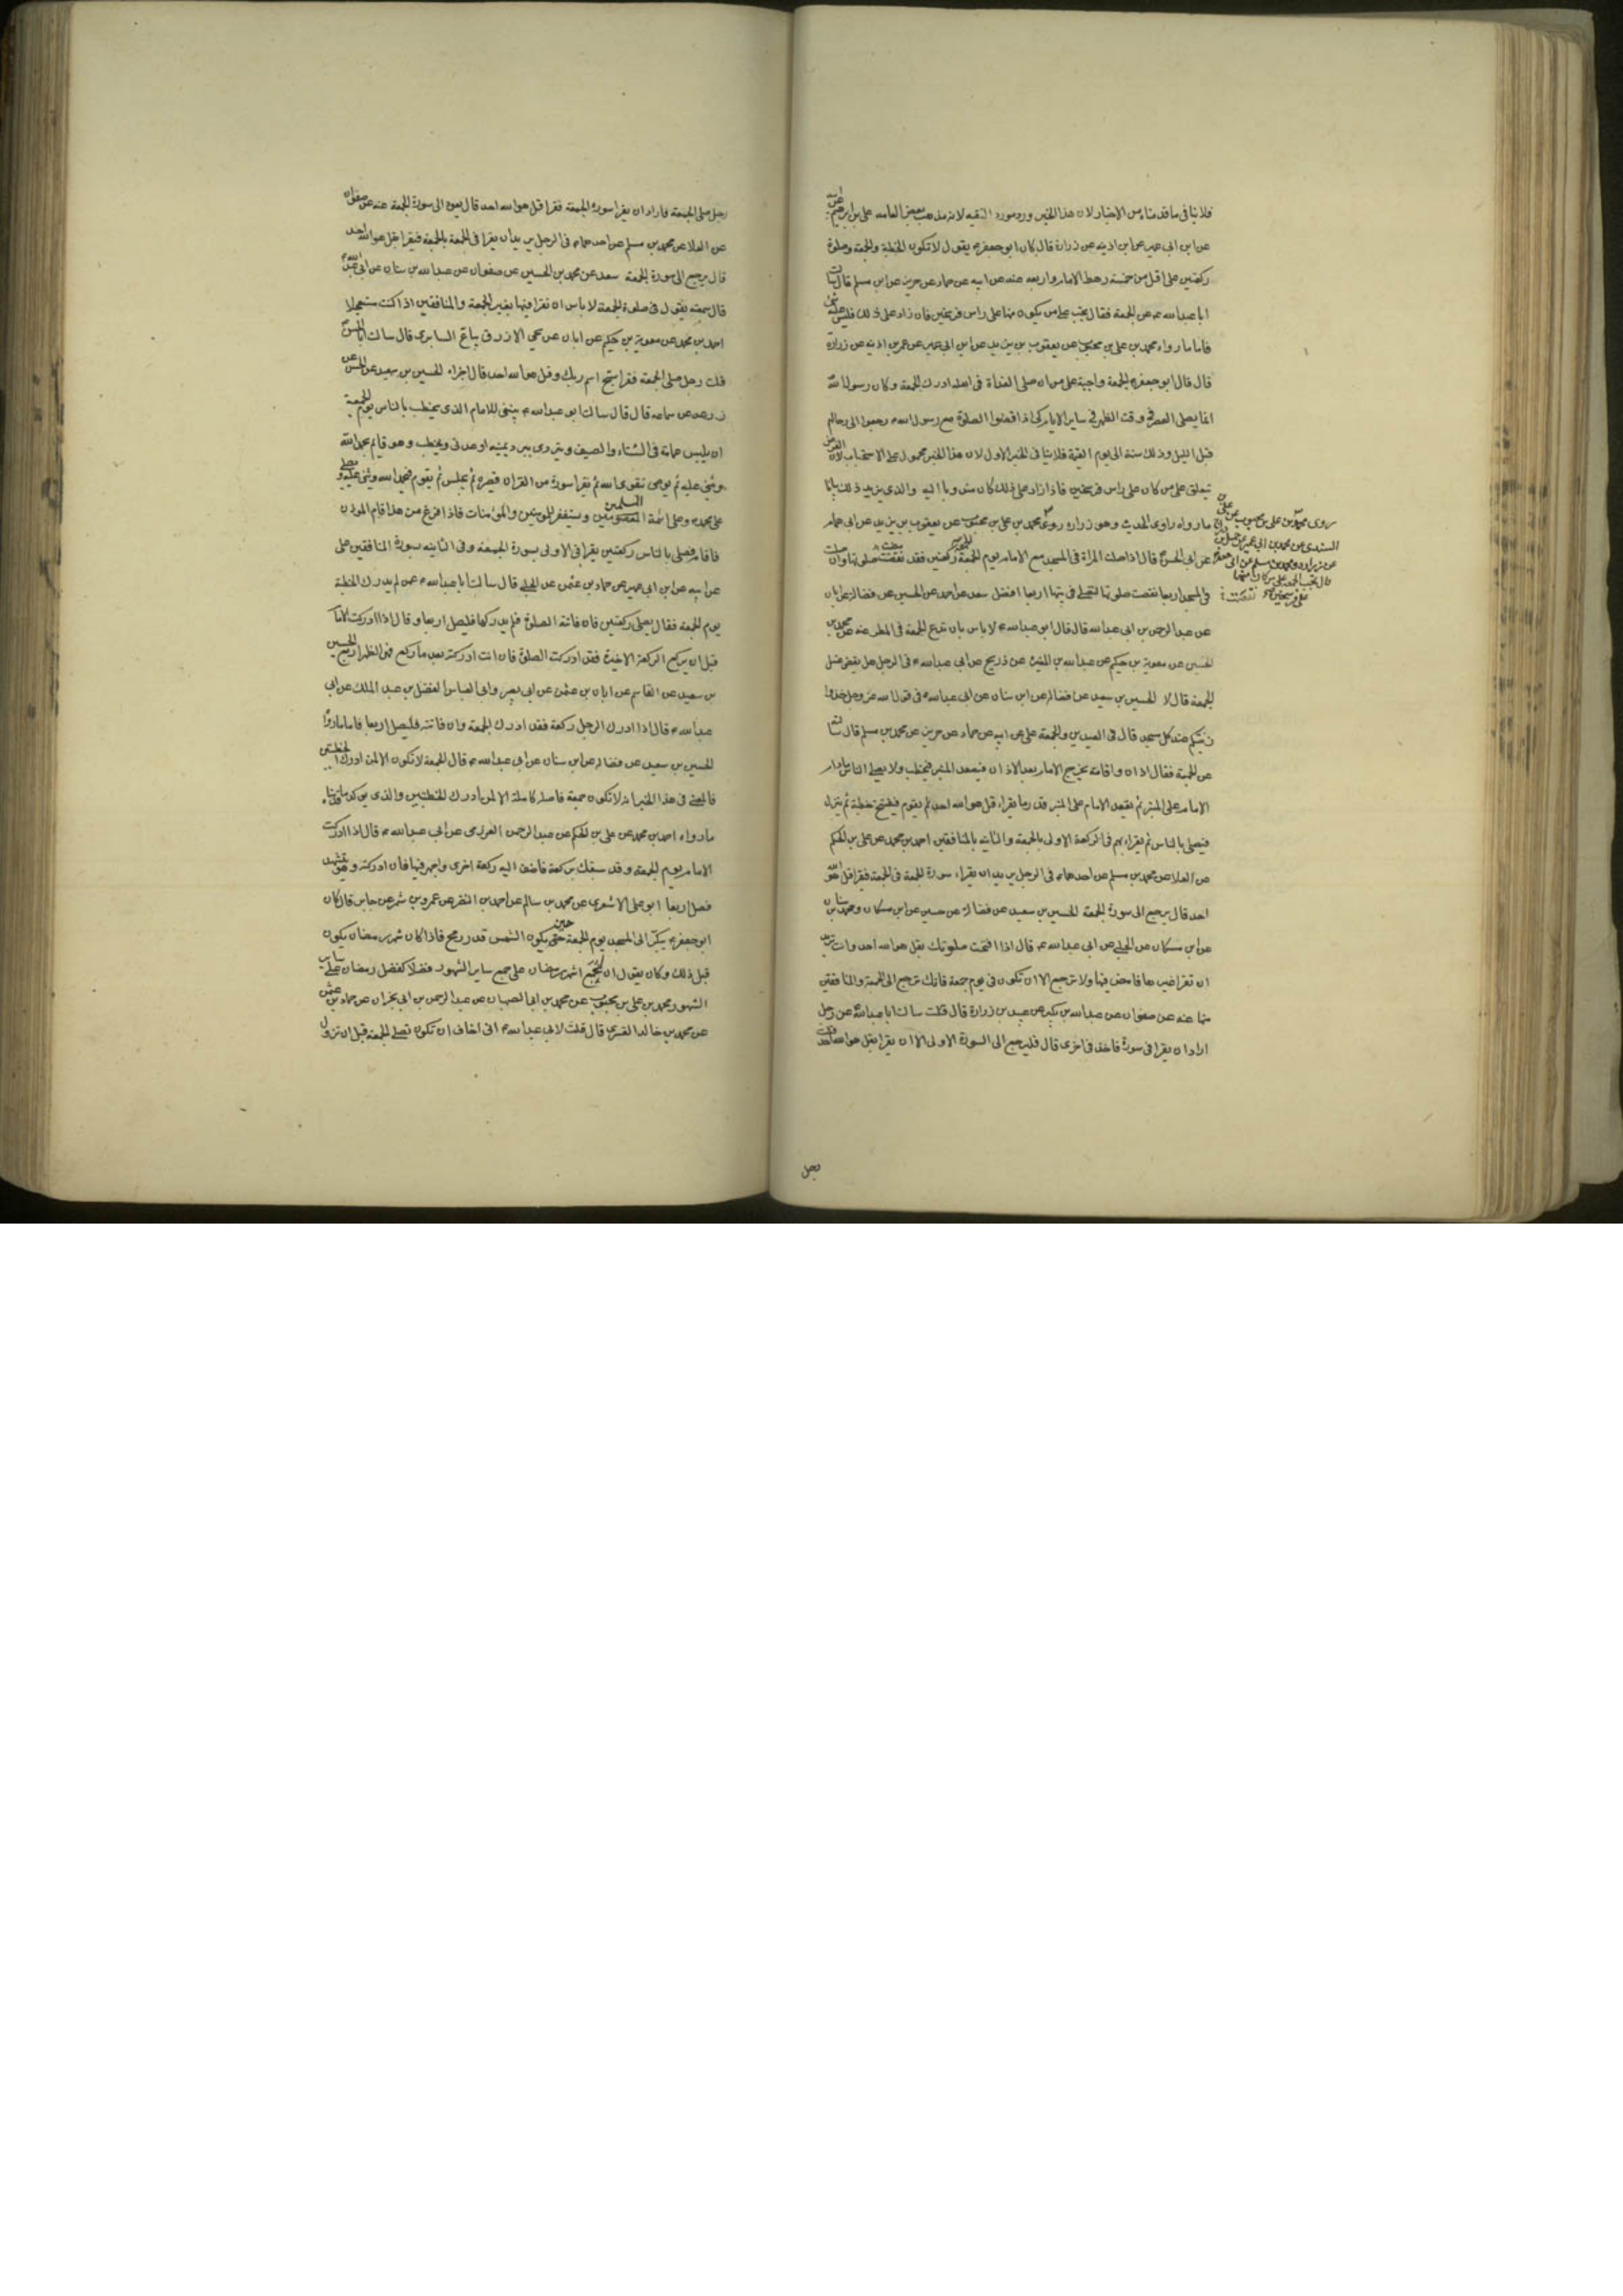 فلا ينافي ما قدمناه من الاخبار لان هذا الخبر ورد مورد التقيه لانه مذهب بعض العامه علي بن ابرهيم عن ابيه
عن ابن ابي عمير عن ابن اذينه عن زرارة قال كان ابو جعفر ع يقول لا تكون الخطبة والجمعة وصلوة
ركعتين على اقل من خمسة رهط الامام واربعه عنه عن ابيه عن حماد عن حريز عن ابن مسلم قال سالت
ابا عبدالله ع عن الجمعة فقال يجب على من يكون منها على راس فرسخين فان زاد على ذلك فليس عليه شئ
فاما ما رواه محمد بن علي بن محبوب عن يعقوب بن يزيد عن ابن ابي عمير عن عمر بن اذينه عن زراره
قال قال ابو جعفر ع الجمعة واجبة على من ان صلى الغداة في اهله ادرك الجمعة وكان رسول الله
انما يصلى العصر في وقت الظهر في ساير الايام كي اذا قضوا الصلوة مع رسول الله رجعوا الى رحالهم
قبل الليل وذلك سنة الى يوم القيمة فلا ينافي الخبر الاول لان هذا الخبر محمول على الاستحباب لان الفرض
تيعلق على من كان على راس فرسخين فاذا زاد على ذلك كان مندوبا اليه والذي يزيد ذلك بيانا
ما رواه راوى الحديث وهو زراره روى محمد بن علي بن محبوب عن يعقوب بن يزيد عن ابي همام
عن ابي الحسن ع قال اذا صلت المراة في المسجد مع الامام يوم الجمعة ركعتين فقد نقصت صلوتها وان صلت
في المسجد اربعا نقصت صلوتها لتصلي في بيتها اربعا افضل سعد عن احمد عن الحسين عن فضالة عن ابان
عن عبد الرحمن بن ابي عبدالله قال قال ابو عبدالله ع لا باس بان تدع الجمعة في المطر عنه عن محمد بن
الحسين عن معوية بن حكيم عن عبدالله بن المغيرة عن ذريح عن ابي عبدالله ع في الرجل هل يقضى غسل
الجمعة قال لا الحسين بن سعيد عن فضالة عن ابن سنان عن ابي عبدالله ع في قول الله عز وجل خذوا
زينتكم عند كل مسجد قال في العيدين والجمعة علي عن ابيه عن حماد عن حريز عن محمد بن مسلم قال سالته
عن الجمعة فقال اذان واقامة يخرج الامام بعد الاذان فيصعد المنبر فيخطب ولا يصلى الناس مادام
الامام على المنبر ثم يقعد الامام على المنبر قدر ما يقراء قل هو الله احد ثم يقوم فيفتتح خطبة ثم ينزل
فيصلى بالناس ثم يقراء بهم في الركعة الاولى بالجمعة والثانيه بالمنافقين احمد بن محمد عن علي بن الحكم
عن العلا عن محمد بن مسلم عن احدهما ع في الرجل يريد ان يقراء سورة الجمعة في الجمعة فقرا قل هو الله
احد قال يرجع الى سورة الجمعة الحسين بن سعيد عن فضالة عن حسين عن ابن مسكان ومحمد بن سنان
عن ابن مسكان عن الحلبي عن ابي عبدالله ع قال اذا افتتحت صلوتك بقل هو الله احد وانت تريد
ان تقرا غيرها فامض فيها ولا ترجع الا ان تكون في يوم جمعة فانك ترجع الى الجمعة والمنافقين
منها عنه عن صفوان عن عبدالله بن بكير عن عبيد بن زرارة قال قلت سالت ابا عبدالله عن رجل
اراد ان يقرا في سورة فاخذ في اخرى قال فليرجع الى السورة الاولى الا ان يقرا بقل هو الله احد قلت
روى محمد بن علي بن محبوب عن علي بن
السندي عن محمد بن ابي عمير عن جميل بن دراج
عن زراره ومحمد بن مسلم عن ابي جعفر ع
قال تجب الجمعه على من كان منها
على فرسخين
رجل
رجل صلى الجمعة فاراد ان يقرا سورة الجمعة فقرا قل هو الله احد قال يعود الى سورة الجمعة عنه عن صفوان
عن العلا عن محمد بن مسلم عن احدهما ع في الرجل يريد ان يقرا في الجمعة بالجمعة فيقرا قل هو الله احد
قال يرجع الى سورة الجمعة سعد عن محمد بن الحسين عن صفوان عن عبدالله بن سنان عن ابي عبدالله
قال سمعته يقول في صلوة الجمعة لا باس ان تقرا فيها بغير الجمعة والمنافقين اذا كنت مستعجلا
احمد بن محمد عن معوية بن حكيم عن ابان عن يحيى الازرق بياع السابرى قال سالت ابا الحسن
قلت رجل صلى الجمعة فقرا سبح اسم ربك وقل هو الله احد قال اجزاه الحسين بن سعيد عن الحسن عن
زرعه عن سماعه قال قال سالت ابو عبدالله ع ينبغى للامام الذى يخطب بالناس يوم الجمعة
ان يلبس عمامة في الشتاء والصيف ويتردى ببرد يمنيه او عدنى ويخطب وهو قايم يحمد الله
ويثنى عليه ثم يوصى بتقوى الله ثم يقرا سورة من القران قصيره ثم يجلس ثم يقوم فيحمد الله ويثنى عليه ويصلي
على محمد وعلى ائمة المسلمين ويستغفر للمومنين والمؤمنات فاذا فرغ من هذا قام الموذن
فاقام فصلى بالناس ركعتين يقرا في الاولى بسورة الجمعة وفي الثانيه بسورة المنافقين علي
عن ابيه عن ابن ابي عمير عن حماد بن عثمن عن الحلبي قال سالت ابا عبدالله ع عن لم يدرك الخطبة
يوم الجمعة فقال يصلى ركعتين فان فاتته الصلوة فلم يدركها فليصل اربعا وقال اذا ادركت الامام
قبل ان يركع الركعة الاخيرة فقد ادركت الصلوة فان انت ادركته بعد ما ركع فهى الظهر اربع الحسين
بن سعيد عن القاسم عن ابان بن عثمن عن ابي بصير وابي العباس الفضل بن عبد الملك عن ابي
عبدالله ع قال اذا ادرك الرجل ركعة فقد ادرك الجمعة وان فاتته فليصل اربعا فاما ما رواه
الحسين بن سعيد عن فضالة عن ابن سنان عن ابي عبدالله ع قال الجمعة لا تكون الا لمن ادرك الخطبتين
فالمعنى في هذا الخبر انه لا تكون جمعة فاضلة كاملة الا لمن ادرك الخطبتين والذى يوكد ما قدمناه
ما رواه احمد بن محمد عن علي بن الحكم عن عبد الرحمن العرزمى عن ابي عبدالله ع قال اذا ادركت
الامام يوم الجمعة وقد سبقك بركعة فاضف اليه ركعة اخرى واجهر فيها فان ادركته وهو يتشهد
فصل اربعا ابو علي الاشعرى عن محمد بن سالم عن احمد بن النضر عن عمرو بن شمر عن جابر قال كان
ابو جعفر ع يبكر الى المسجد يوم الجمعة حين يكون الشمس قدر رمح فاذا كان شهر رمضان يكون
قبل ذلك وكان يقول ان لجمع شهر رمضان على جمع ساير الشهور فضلا كفضل رمضان على ساير
الشهور محمد بن علي بن محبوب عن محمد بن ابي الصهبان عن عبد الرحمن بن ابي نجران عن حماد بن عثمن
عن محمد بن خالد القسرى قال قلت لابي عبدالله ع انى اخاف ان تكون تصلى الجمعة قبل ان تزول